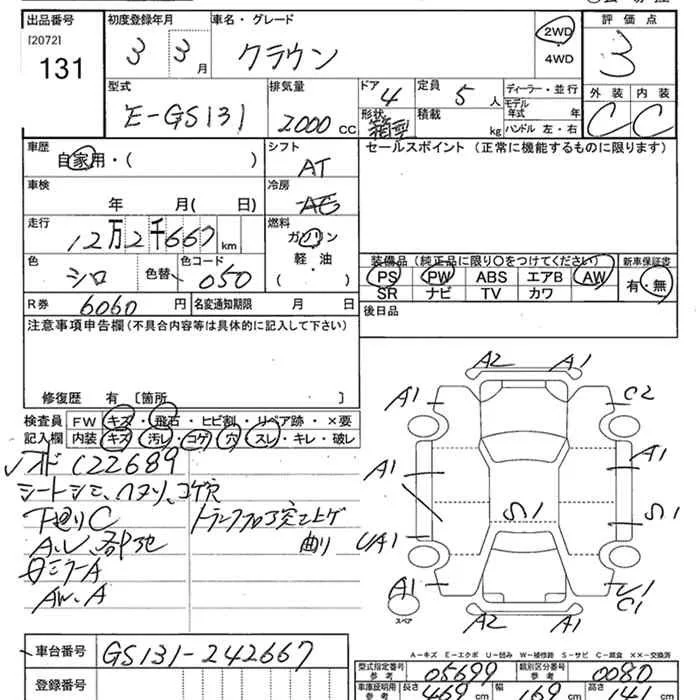 出品番号 初度登録年月 車名・グレード 評価点
[2072] 131 3 3月 クラウン 2WD・4WD 3
型式 排気量 ドア 4 定員 5人 ディーラー・並行 外装 内装
E-GS131 2000cc 形状 箱型 積載 kg モデル年式 年 C C
ハンドル 左・右
車歴 シフト セールスポイント(正常に機能するものに限ります)
自家用・( ) AT
車検 冷房
年 月( 日) AC
走行 燃料
12万2千667km ガソリン
色 色替 色コード 軽・油 装備品(純正品に限り○をつけてください) 新車保証書
シロ 050 ( ) PS PW ABS エアB AW 有・無
SR ナビ TV カワ
R券 6060円 名変通知期限 月 日 後日品
注意事項申告欄(不具合内容等は具体的に記入して下さい)
修復歴 有 [箇所 ]
検査員 FW キズ・飛石・ヒビ割・リペア跡・×要
記入欄 内装 キズ・汚レ・コゲ・穴・スレ・キレ・破レ
C22689
シートシミ、コゲ穴
下廻りC
曲り
AW.A
A2 A1
A1 C2
A1 A1
S1
S1
UA1
A1 U1
C1
A2 A1
スペア
A-キズ E-エクボ U-凹み W-補修跡 S-サビ C-腐食 ××-交換済
車台番号 GS131-242667
登録番号
型式指定番号 参考 05699 類別区分番号 参考 0080
車庫証明用 参考 長さ 469cm 幅 169cm 高さ 141cm